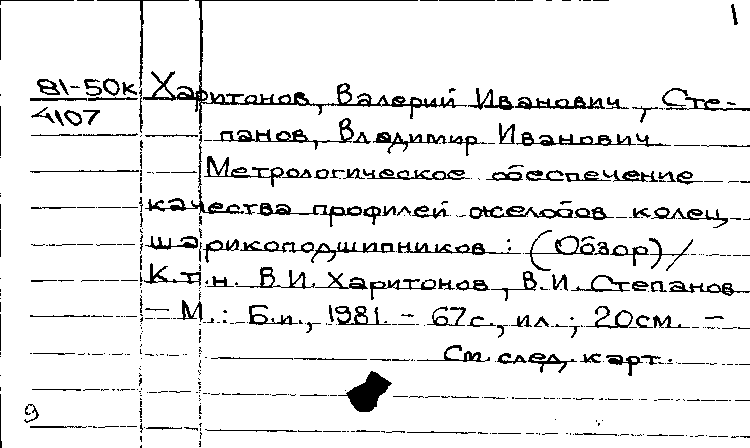 1
81-50к Харитонов, Валерий Иванович, Сте-
4107 панов, Владимир Иванович
Метрологическое обеспечение
качества профилей желобов колец
шарикоподшипников : (Обзор) /
К.т.н. В.И. Харитонов, В.И. Степанов
— М. : Б.и., 1981. - 67с., ил. ; 20см. —
См. след. карт.
9